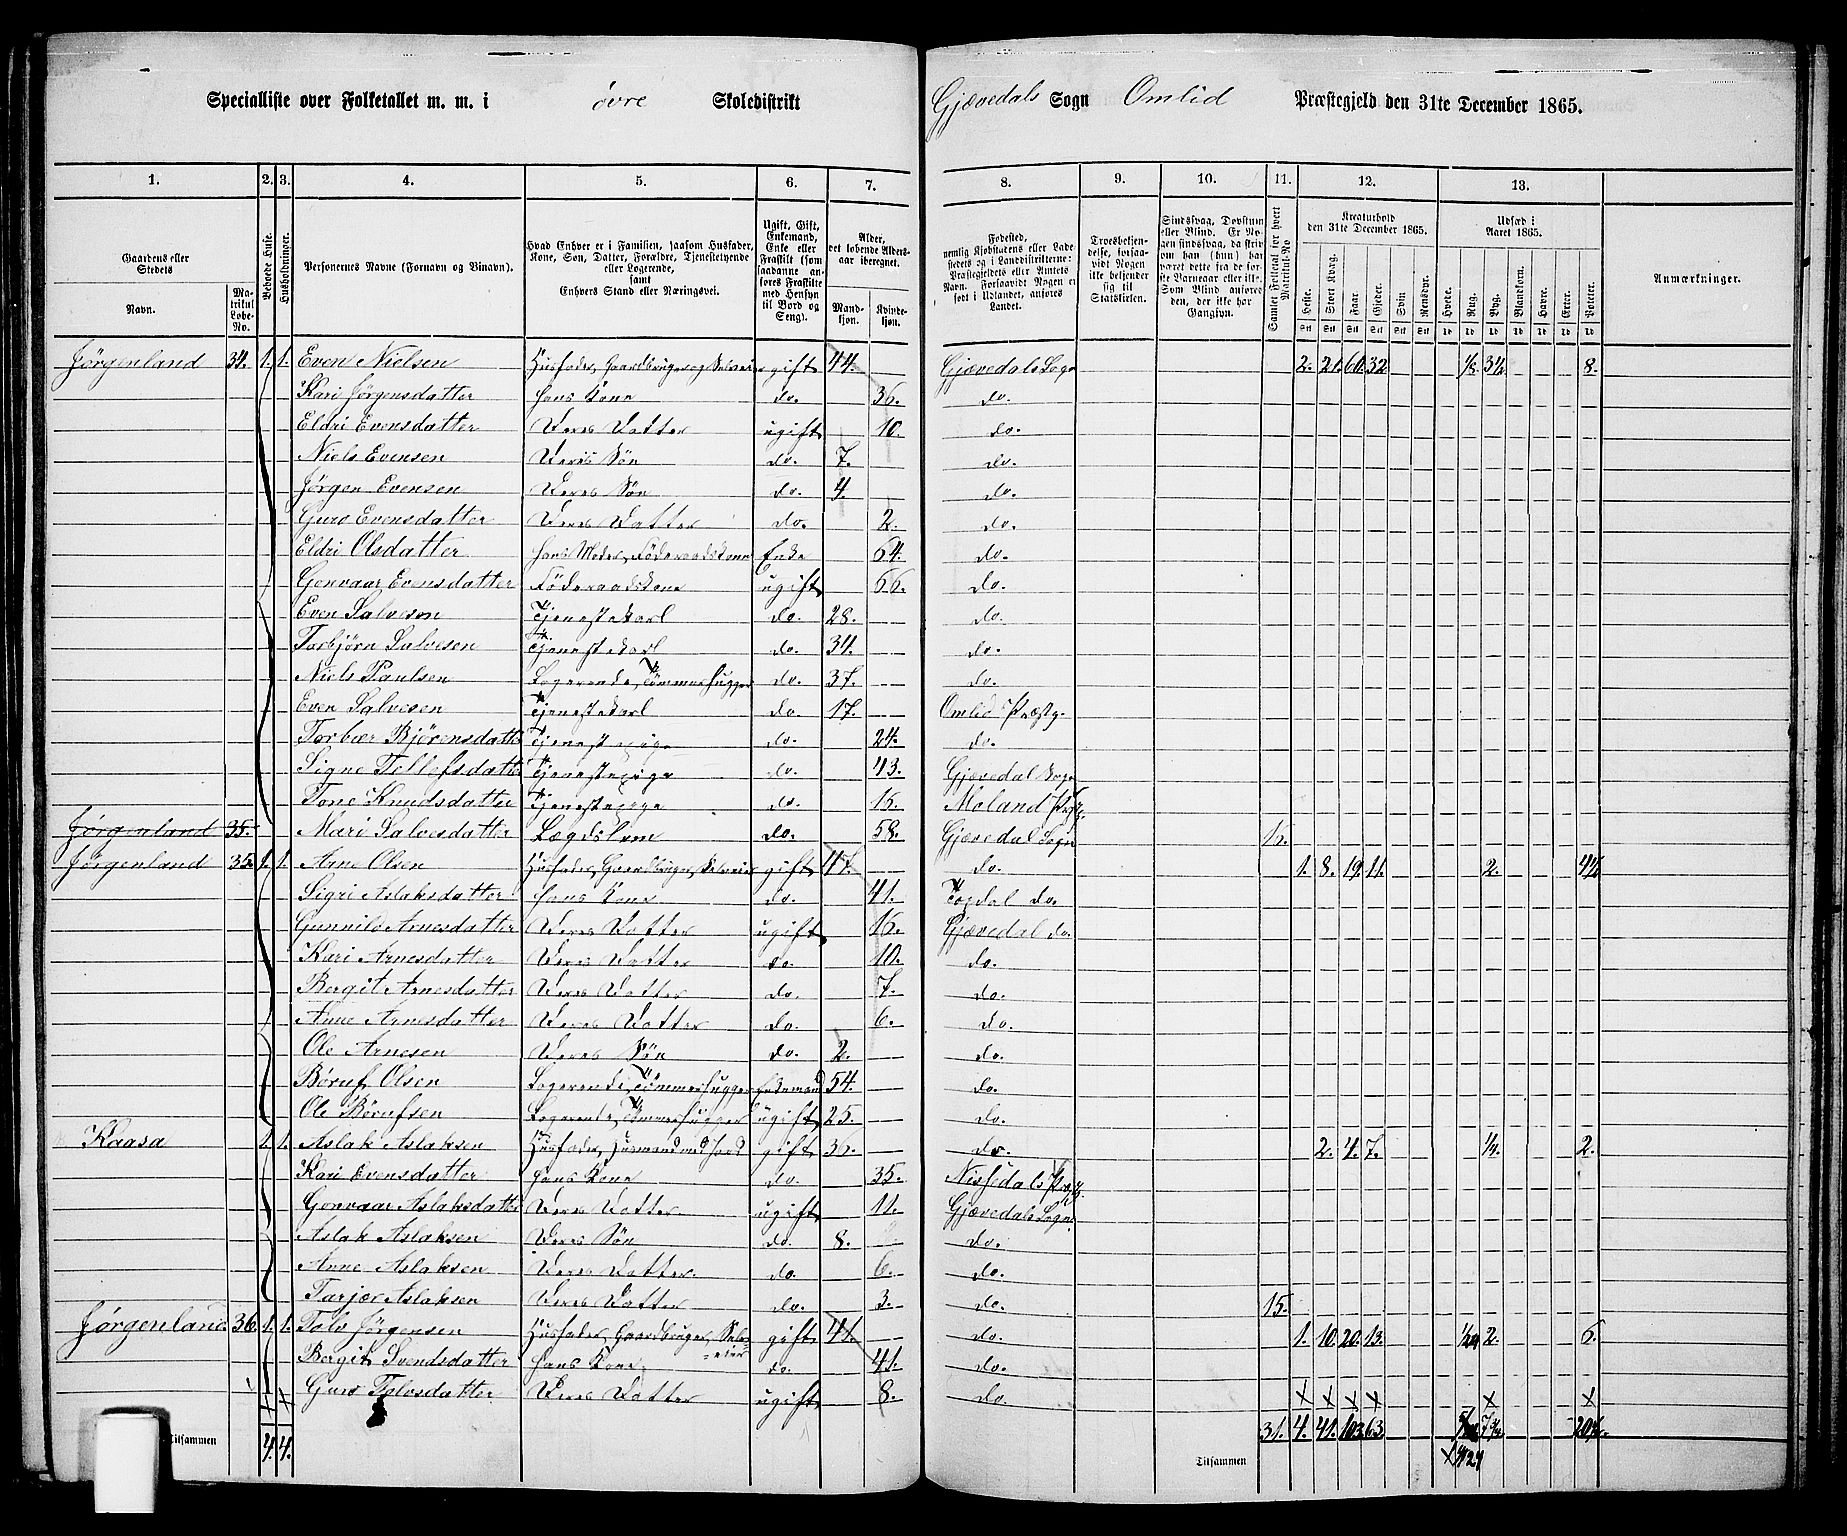 Specialliste over Folketallet m. m. i øvre Skoledistrikt Gjævedals Sogn Omlid Præstegjeld den 31te December 1865.
1. 2. 3. 4. 5. 6. 7. 8. 9. 10. 11. 12. 13.
Gaardens eller Stedets
Navn.
Matrikul Løbe-No.
Beboede Huse.
Husholdninger.
Personernes Navne (Fornavn og Tilnavn).
Hvad Enhver er i Familien, saasom Husfader, Kone, Søn, Datter, Forældre, Tjenestetyende eller Logerende, samt Enhvers Stand eller Næringsvei.
Ugift, Gift, Enkemand, Enke eller Fraskilt (som saadanne anføres Fraskilte med Hensyn til Bord og Seng).
Alder, det løbende Aldersaar iberegnet.
Mandkjøn.
Kvindekjøn.
Fødested, nemlig Kjøbstædens eller Ladestedets og i Landdistrikterne: Præstegjeldets eller Amtets Navn. Forsaavidt Nogen er født i Udlandet, anføres Landet.
Troesbekjendelse, forsaavidt Nogen ikke bekjender sig til Statskirken.
Sindssvag, Døvstum eller Blind.
Samlet Folketal for hvert Matrikul-No
Kreaturhold den 31te December 1865.
Heste. Stort Kvæg. Faar. Gjeder. Svin Rensdyr.
Udsæd i Aaret 1865.
Hvede. Rug. Byg. Blandkorn. Havre. Erter. Poteter.
Anmærkninger.
Jørgenland 34. 1. 1. Even Nielsen Husfader, Gaardbruger og Selveier gift 44. Gjævedals Sogn 2. 21. 60. 32 1/8. 3½ 8.
Kari Jørgensdatter Hans Kone do. 36. do.
Eldri Evensdatter Deres Datter ugift 10. do.
Niels Evensen Deres Søn do. 7. do.
Jørgen Evensen Deres Søn do. 4. do.
Guro Evensdatter Deres Datter do. 2. do.
Eldri Olsdatter Hans Moder, Føderaadskone Enke 64. do.
Gonvaar Evensdatter Føderaadskone ugift 66. do.
Even Salveson Tjenestekarl do. 28. do.
Torbjørn Salvesen Tjenestekarl do. 34. do.
Niels Paulsen Logerende, Tømmerhugger do. 37. do.
Even Salvesen Tjenestekarl do. 17. Omlid Præstg.
Torbær Bjørensdatter Tjenestepige do. 24. do.
Signe Tellefsdatter Tjenestepige do. 43. Gjævedal Sogn
Tone Knudsdatter Tjenestepige do. 16. Moland Præg.
Jørgenland 35. Mari Salvesdatter Lægdslem do. 58. Gjævedal Sogn 16.
Jørgenland 35. 1. 1. Arne Olsen Husfader, Gaardbruger, Selveier gift 47. do. 1. 8. 19. 11. 2. 4½
Sigri Aslaksdatter Hans Kone do. 41. Topdal do.
Gunnild Arnesdatter Deres Datter ugift 16. Gjævedal do.
Kari Arnesdatter Deres Datter do. 10. do.
Bergit Arnesdatter Deres Datter do. 7. do.
Anne Arnesdatter Deres Datter do. 6. do.
Ole Arnesen Deres Søn do. 2. do.
Børuf Olsen Logerende, Tømmerhugger Enkemand 54. do.
Ole Børufsen Logerende, Tømmerhugger ugift 25. do.
Kaasa 1. 1. Aslak Aslaksen Husfader, Husmand med Jord gift 36. do. 2. 4. 7. ¼. 2.
Kari Evensdatter Hans Kone do. 35. Nissedals Præg.
Gonvaar Aslaksdatter Deres Datter. ugift 11. Gjævedals Sogn.
Aslak Aslaksen Deres Søn do. 8. do.
Anne Aslaksen Deres Datter. do. 6. do.
Tarjer Aslaksen Deres Datter do. 3. do. 15.
Jørgenland. 36. 1. 1. Tolv Jørgensen Husfader, Gaardbruger, Selveier gift 41. do. 1. 10. 20. 13. 1/24 2. 6.
Bergit Svendsdatter Hans Kone do. 41. do.
Guro Tolvsdatter Deres Datter ugift 8. do.
Tilsammen 4. 4. Tilsammen 31. 4. 41. 103 63. 7¾ 20½.